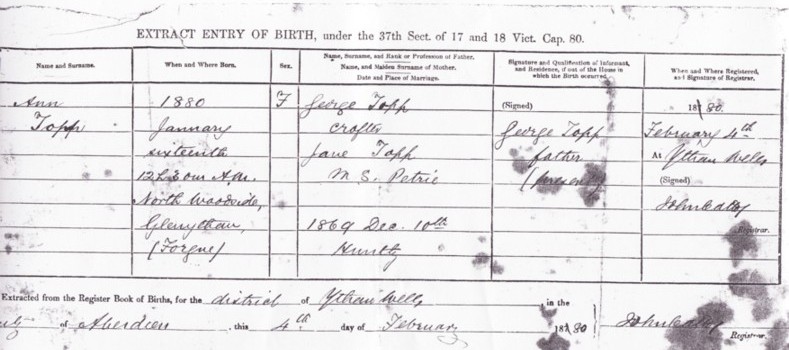 EXTRACT ENTRY OF BIRTH, under the 37th Sect. of 17 and 18 Vict. Cap. 80.
Name and Surname.
When and Where Born.
Sex.
Name, Surname, and Rank or Profession of Father.
Name, and Maiden Surname of Mother.
Date and Place of Marriage.
Signature and Qualification of Informant,
and Residence, if out of the House in
which the Birth occurred.
When and Where Registered,
and Signature of Registrar.
Ann
Topp
1880
January
sixteenth
A.M.
North Woodside,
Glenythan,
(Forgue)
F
George Topp
Crofter
Jane Topp
M.S. Petrie
1869 Dec. 10th
Huntly
(Signed)
George Topp
father
(present)
1880.
February 4th
At Ythan Wells
(Signed)
John
Registrar.
Extracted from the Register Book of Births, for the district of Ythan Wells, in the
of Aberdeen, this 4th day of February 1880
John
Registrar.